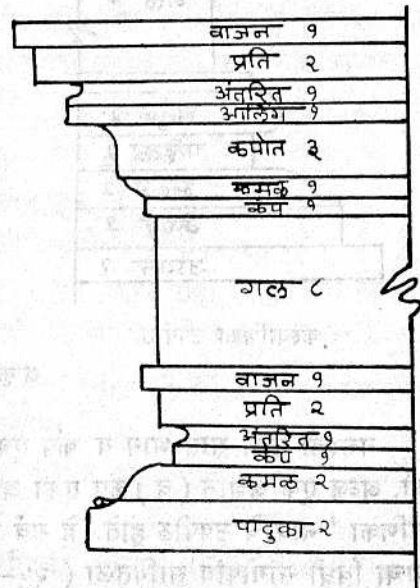 वाजन १
प्रति २
अंतरित १
आलिंग १
कपोत ३
कमल १
कंप १
गल ८
वाजन १
प्रति २
अंतरित १
कंप १
कमल २
पादुका २